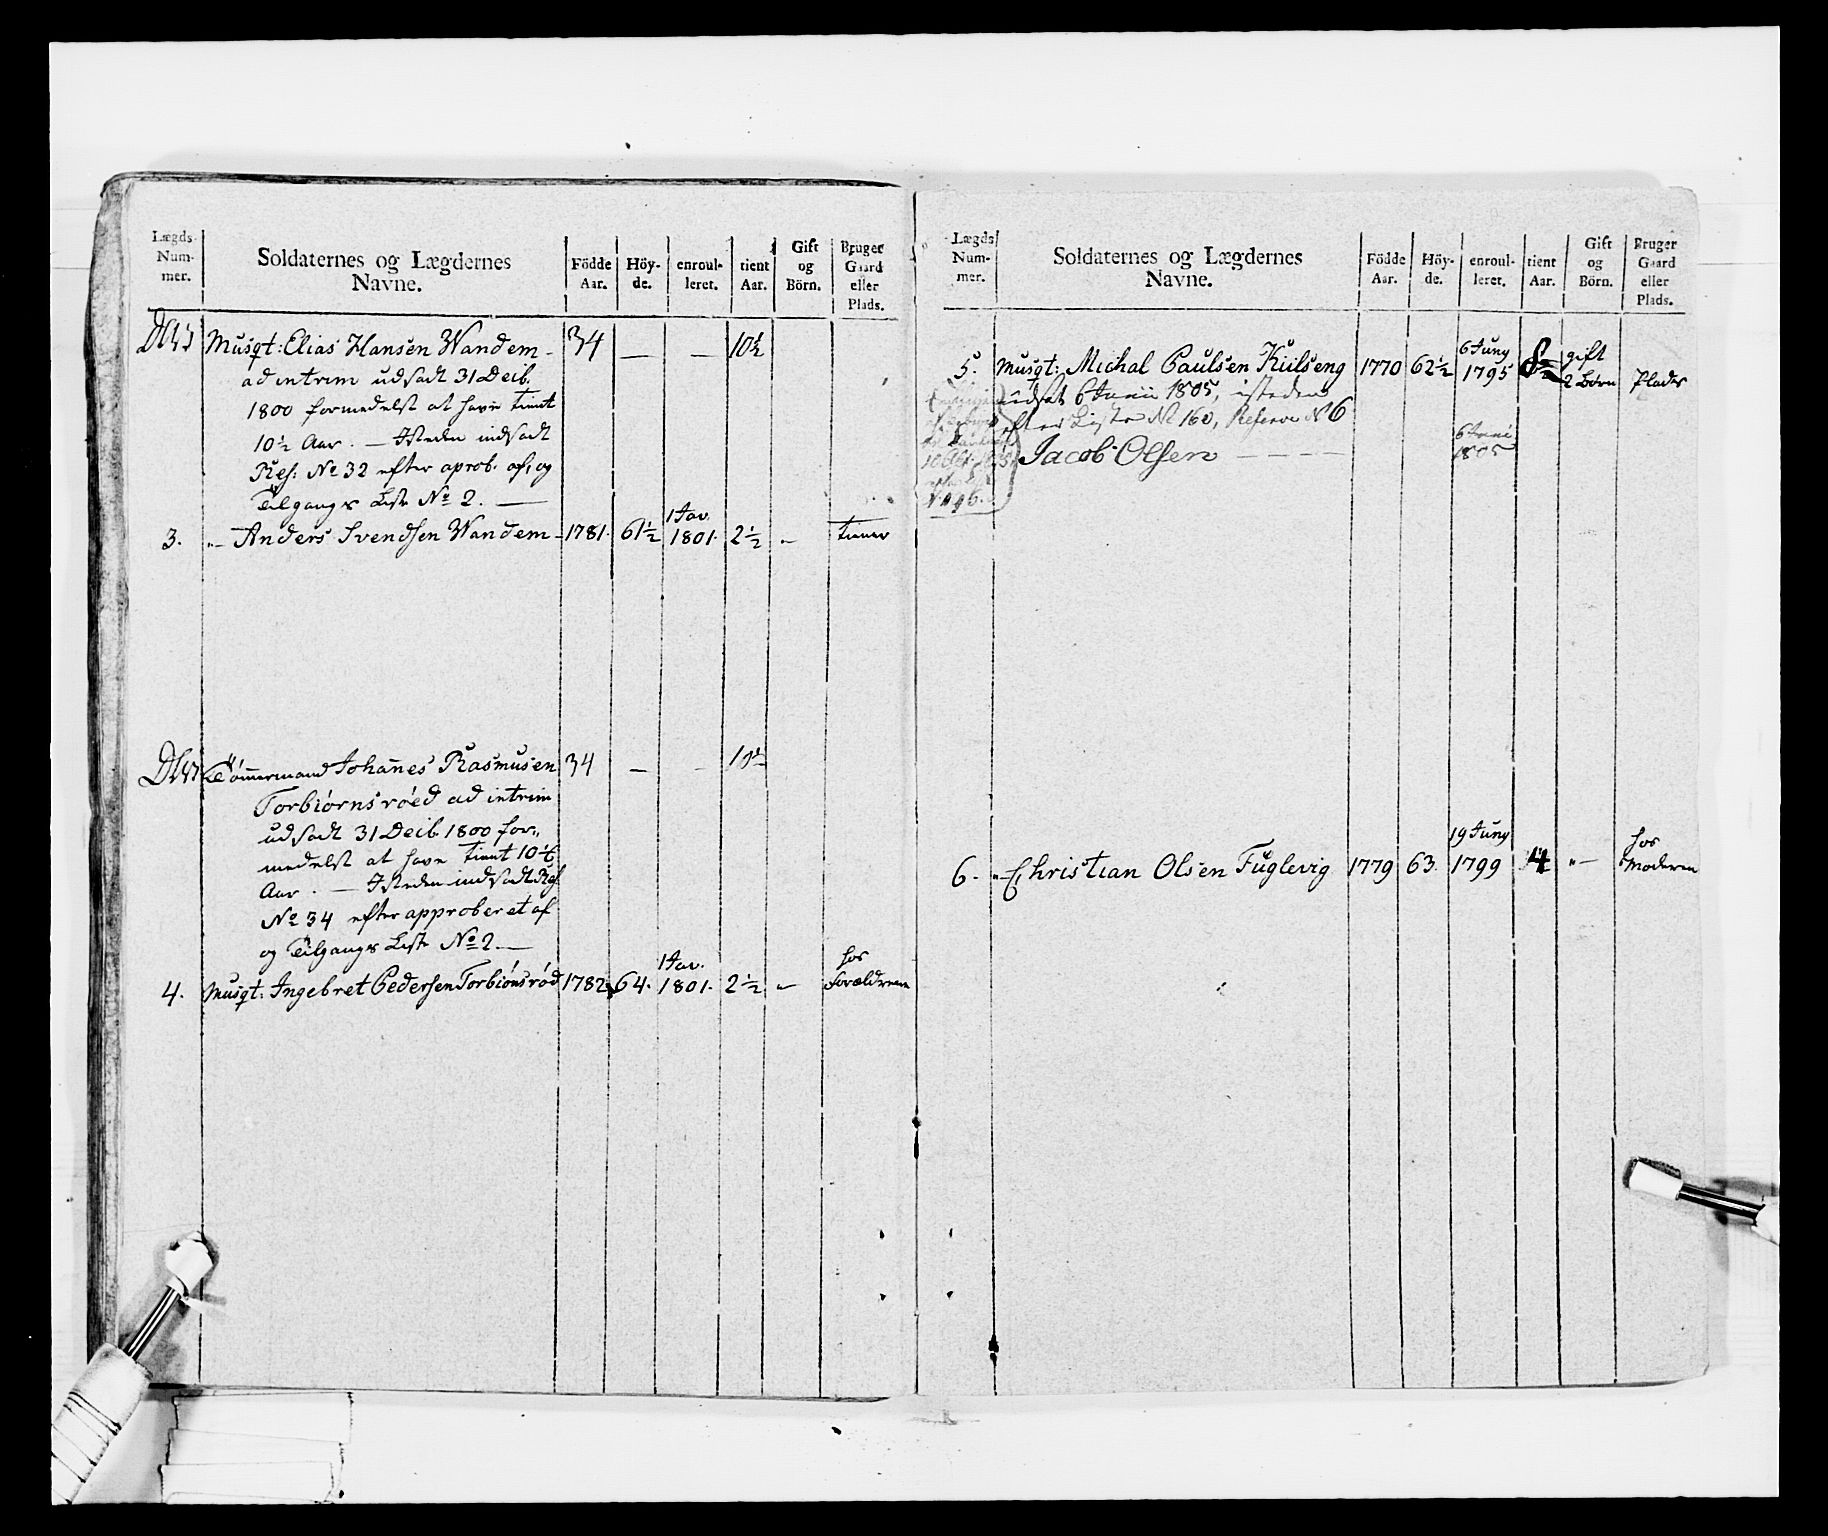 Lægds Num- mer.
Soldaternes og Lægdernes Navne.
Födde Aar.
Höy- de.
enroul- leret.
tient Aar.
Gift og Börn.
Bruger Gaard eller Plads.
Musqt: Elias Hansen Wandem - 34 — — 10½
ad intrim udsadt 31 Decb.
1800 formedelst at have tient
10½ Aar. — Isteden indsadt
Res: No 32 efter aprob. af, og
Tilgangs Liste No 2. —
3. „ — Anders Svendsen Wandem - 1781. 61½ 1 Jav. 1801. 2½ „ tiener
Tömmermand Johannes Rasmusen 34 — — 10½
Torbiørnsrøed ad intrim
udsadt 31 Decb. 1800 for„
medelst at have tient 10½
Aar. — Isteden indsadt Res
No 34 efter approberet af
og Tilgangs Liste No 2. —
4. Musqt: Ingebret Pedersen Torbiönsrød 1782 64. 1 Jav. 1801. 2½ „ hos Forældrene
Lægds Num- mer.
Soldaternes og Lægdernes Navne.
Födde Aar.
Höy- de.
enroul- leret.
tient Aar.
Gift og Börn.
Bruger Gaard eller Plads.
5. Musqt: Michal Paulsen Kiilseng 1770 62½ 6 Juny 1795 8½ gift 2 Börn Plads
udsat 6 Junii 1805, isteden
efter Liste No 160, Reserve No 6
Jacob Olsen — — — — 6 Juni 1805
6. „ — Christian Olsen Fuglevig 1779 63. 19 Juny 1799 4 „ — hos Moderen